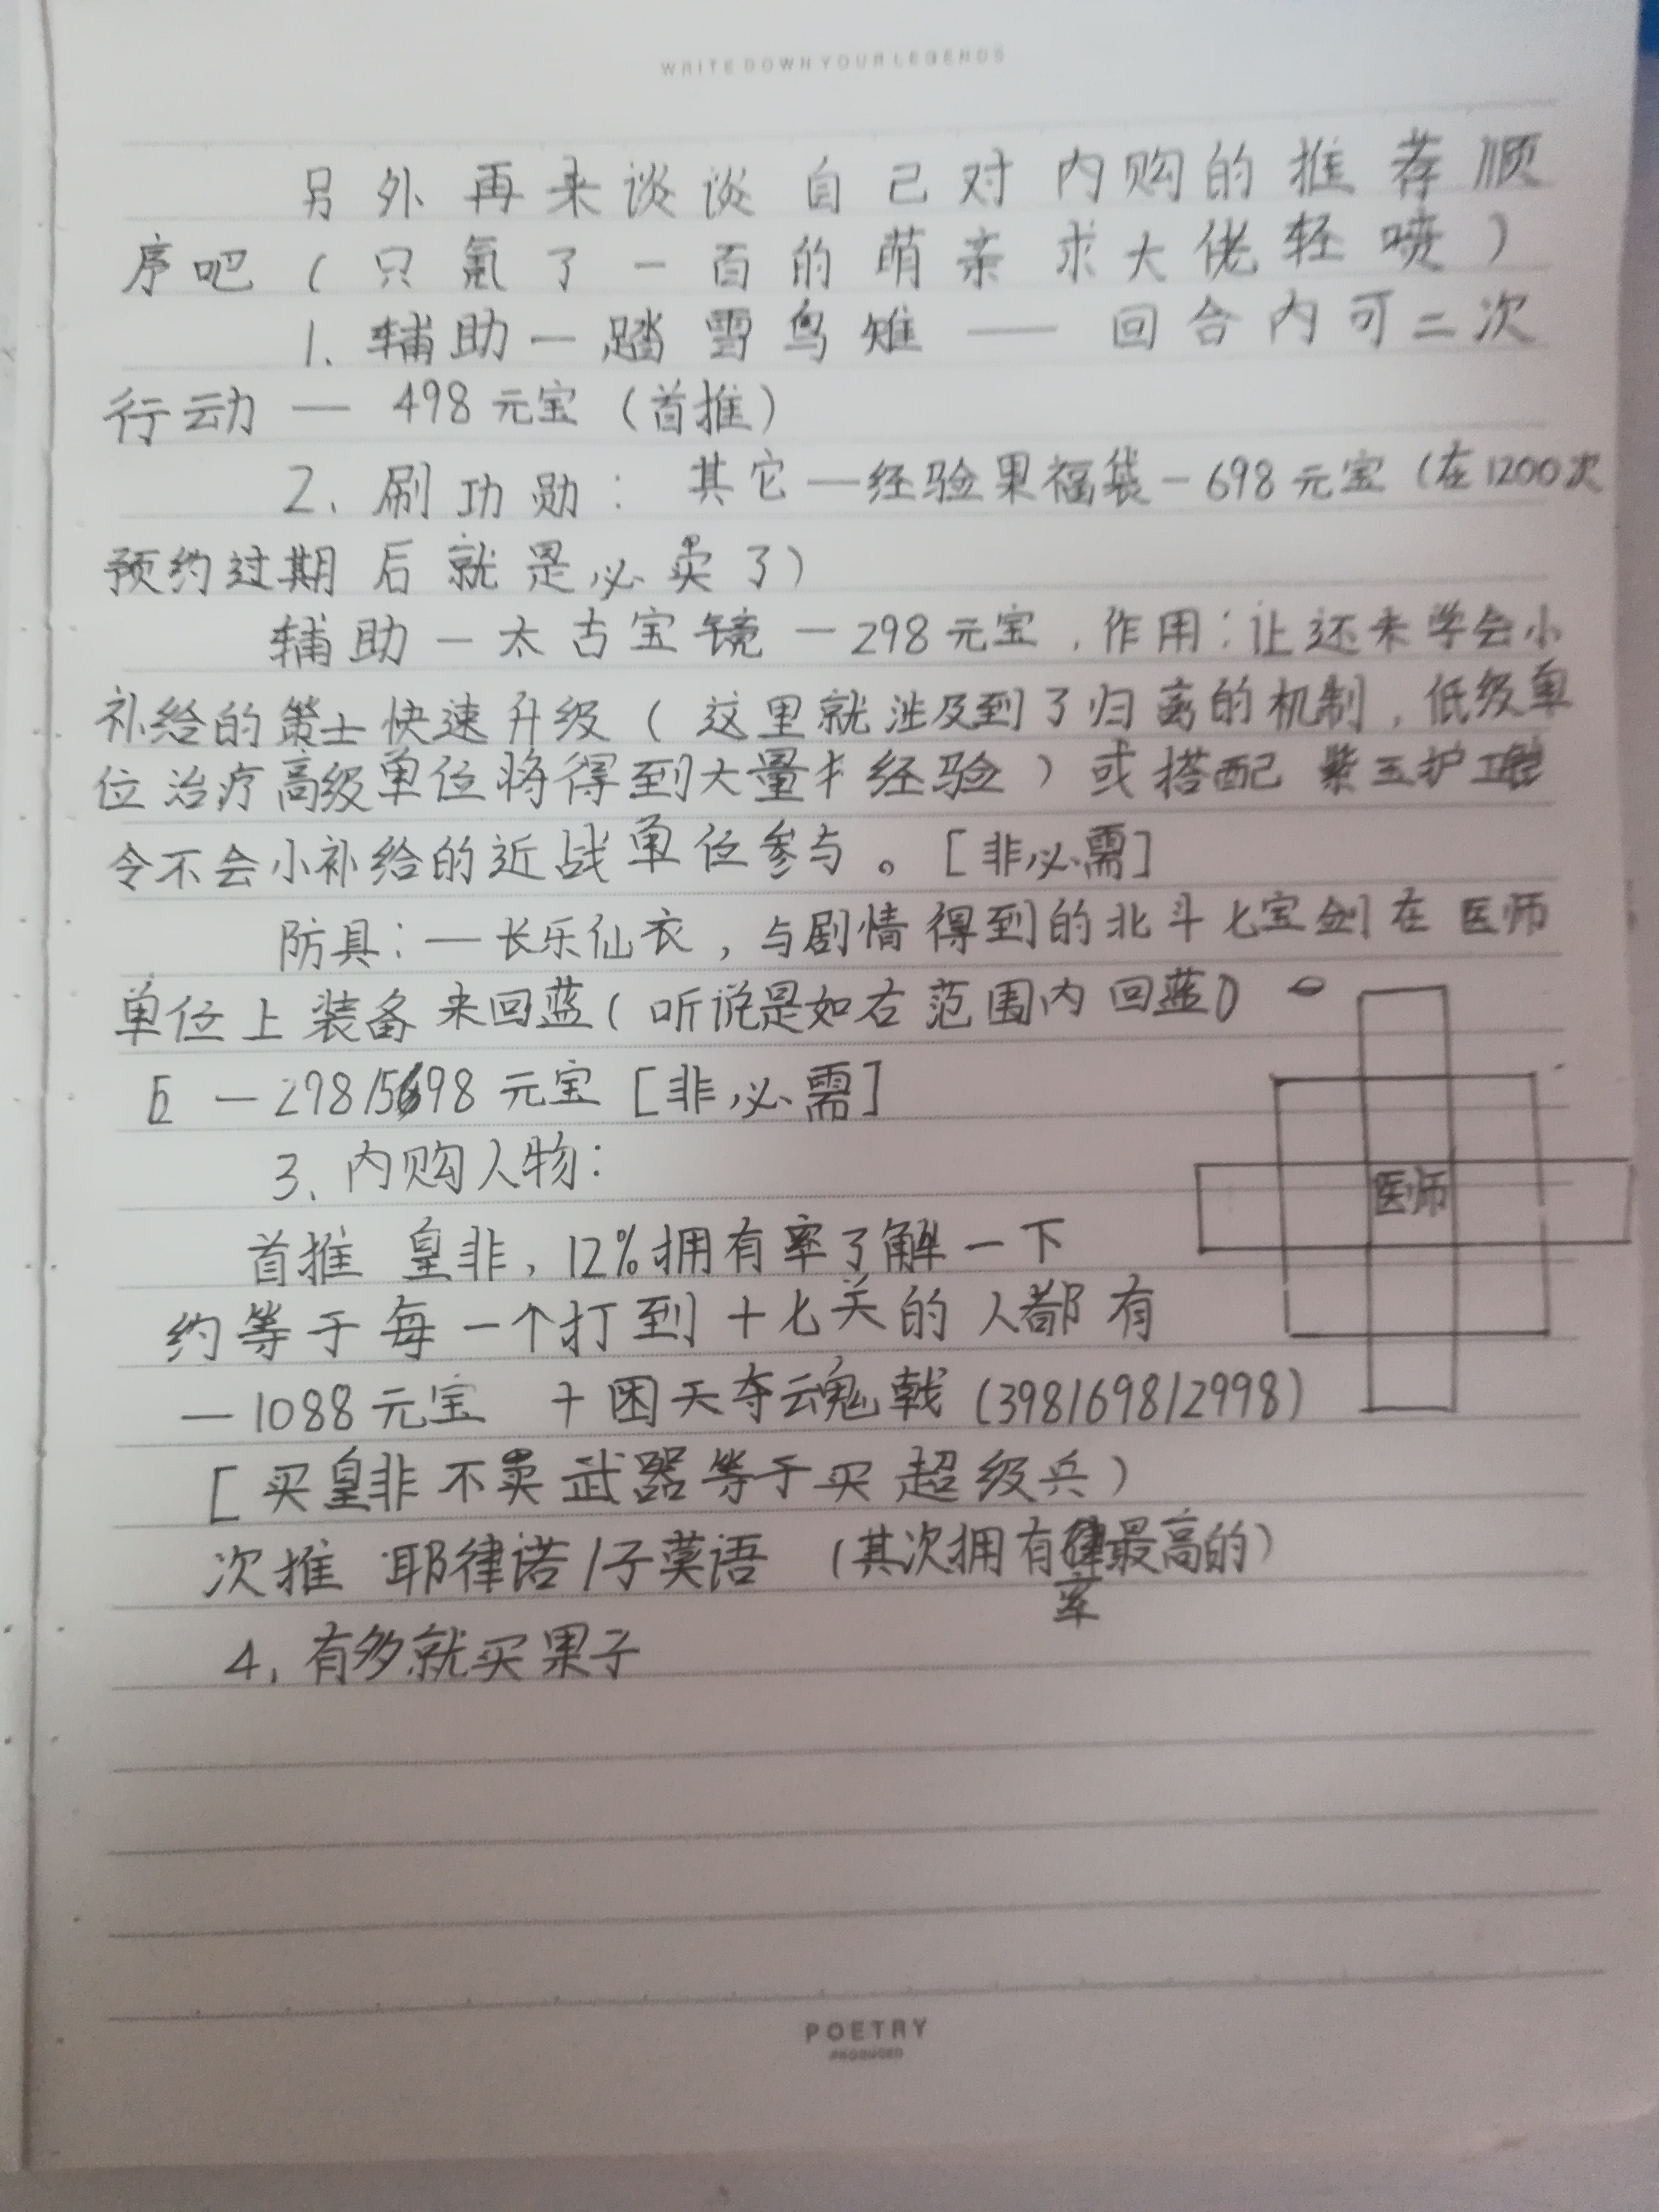 WRITE DOWN YOUR LEGENDS
另外再来谈谈自己对内购的推荐顺
序吧(只氪了一百的萌亲求大佬轻喷)
1. 辅助—踏雪乌骓——回合内可二次
行动—498元宝(首推)
2. 刷功勋: 其它—经验果福袋—698元宝(在1200次
预约过期后就是必卖了)
辅助—太古宝镜—298元宝,作用:让还未学会小
补给的策士快速升级(这里就涉及到了归离的机制,低级单
位治疗高级单位将得到大量经验)或搭配紫玉护
令不会小补给的近战单位参与。[非必需]
防具:—长乐仙衣,与剧情得到的北斗七宝剑在医师
单位上装备来回蓝(听说是如右范围内回蓝)
—298/5698元宝[非必需]
3. 内购人物:
医师
首推 皇非,12%拥有率了解一下
约等于每一个打到十七关的人都有
—1088元宝 +困天夺魂戟(398/698/2998)
[买皇非不卖武器等于买超级兵)
次推 耶律诺/子莫语 (其次拥有率最高的)
4. 有多就买果子
POETRY
PRODUCED